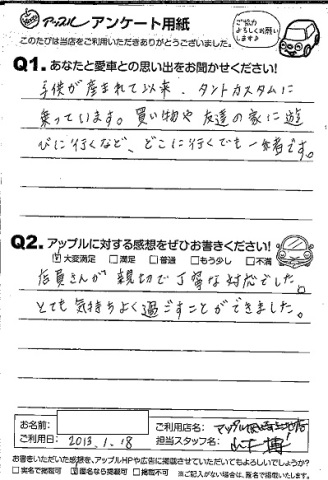 アップル アンケート用紙
ご協力よろしくお願いします♪
このたびは当店をご利用いただきありがとうございました。
Q1. あなたと愛車との思い出をお聞かせください!
子供が産まれて以来、タントカスタムに
乗っています。買い物や友達の家に遊
びに行くなど、どこに行くでも一緒です。
Q2. アップルに対する感想をぜひお書きください!
☑大変満足 □満足 □普通 □もう少し □不満
店員さんが親切で丁寧な対応でした。
とても気持ちよく過ごすことができました。
お名前:
ご利用店名: アップル
ご利用日: 2013.1.18
担当スタッフ名:
お書きいただいた感想を、アップルHPや広告に掲載させていただいてもよろしいでしょうか?
□実名で掲載可 ☑匿名なら掲載可 □掲載不可 ※ご記入がない場合は、匿名で掲載いたします。